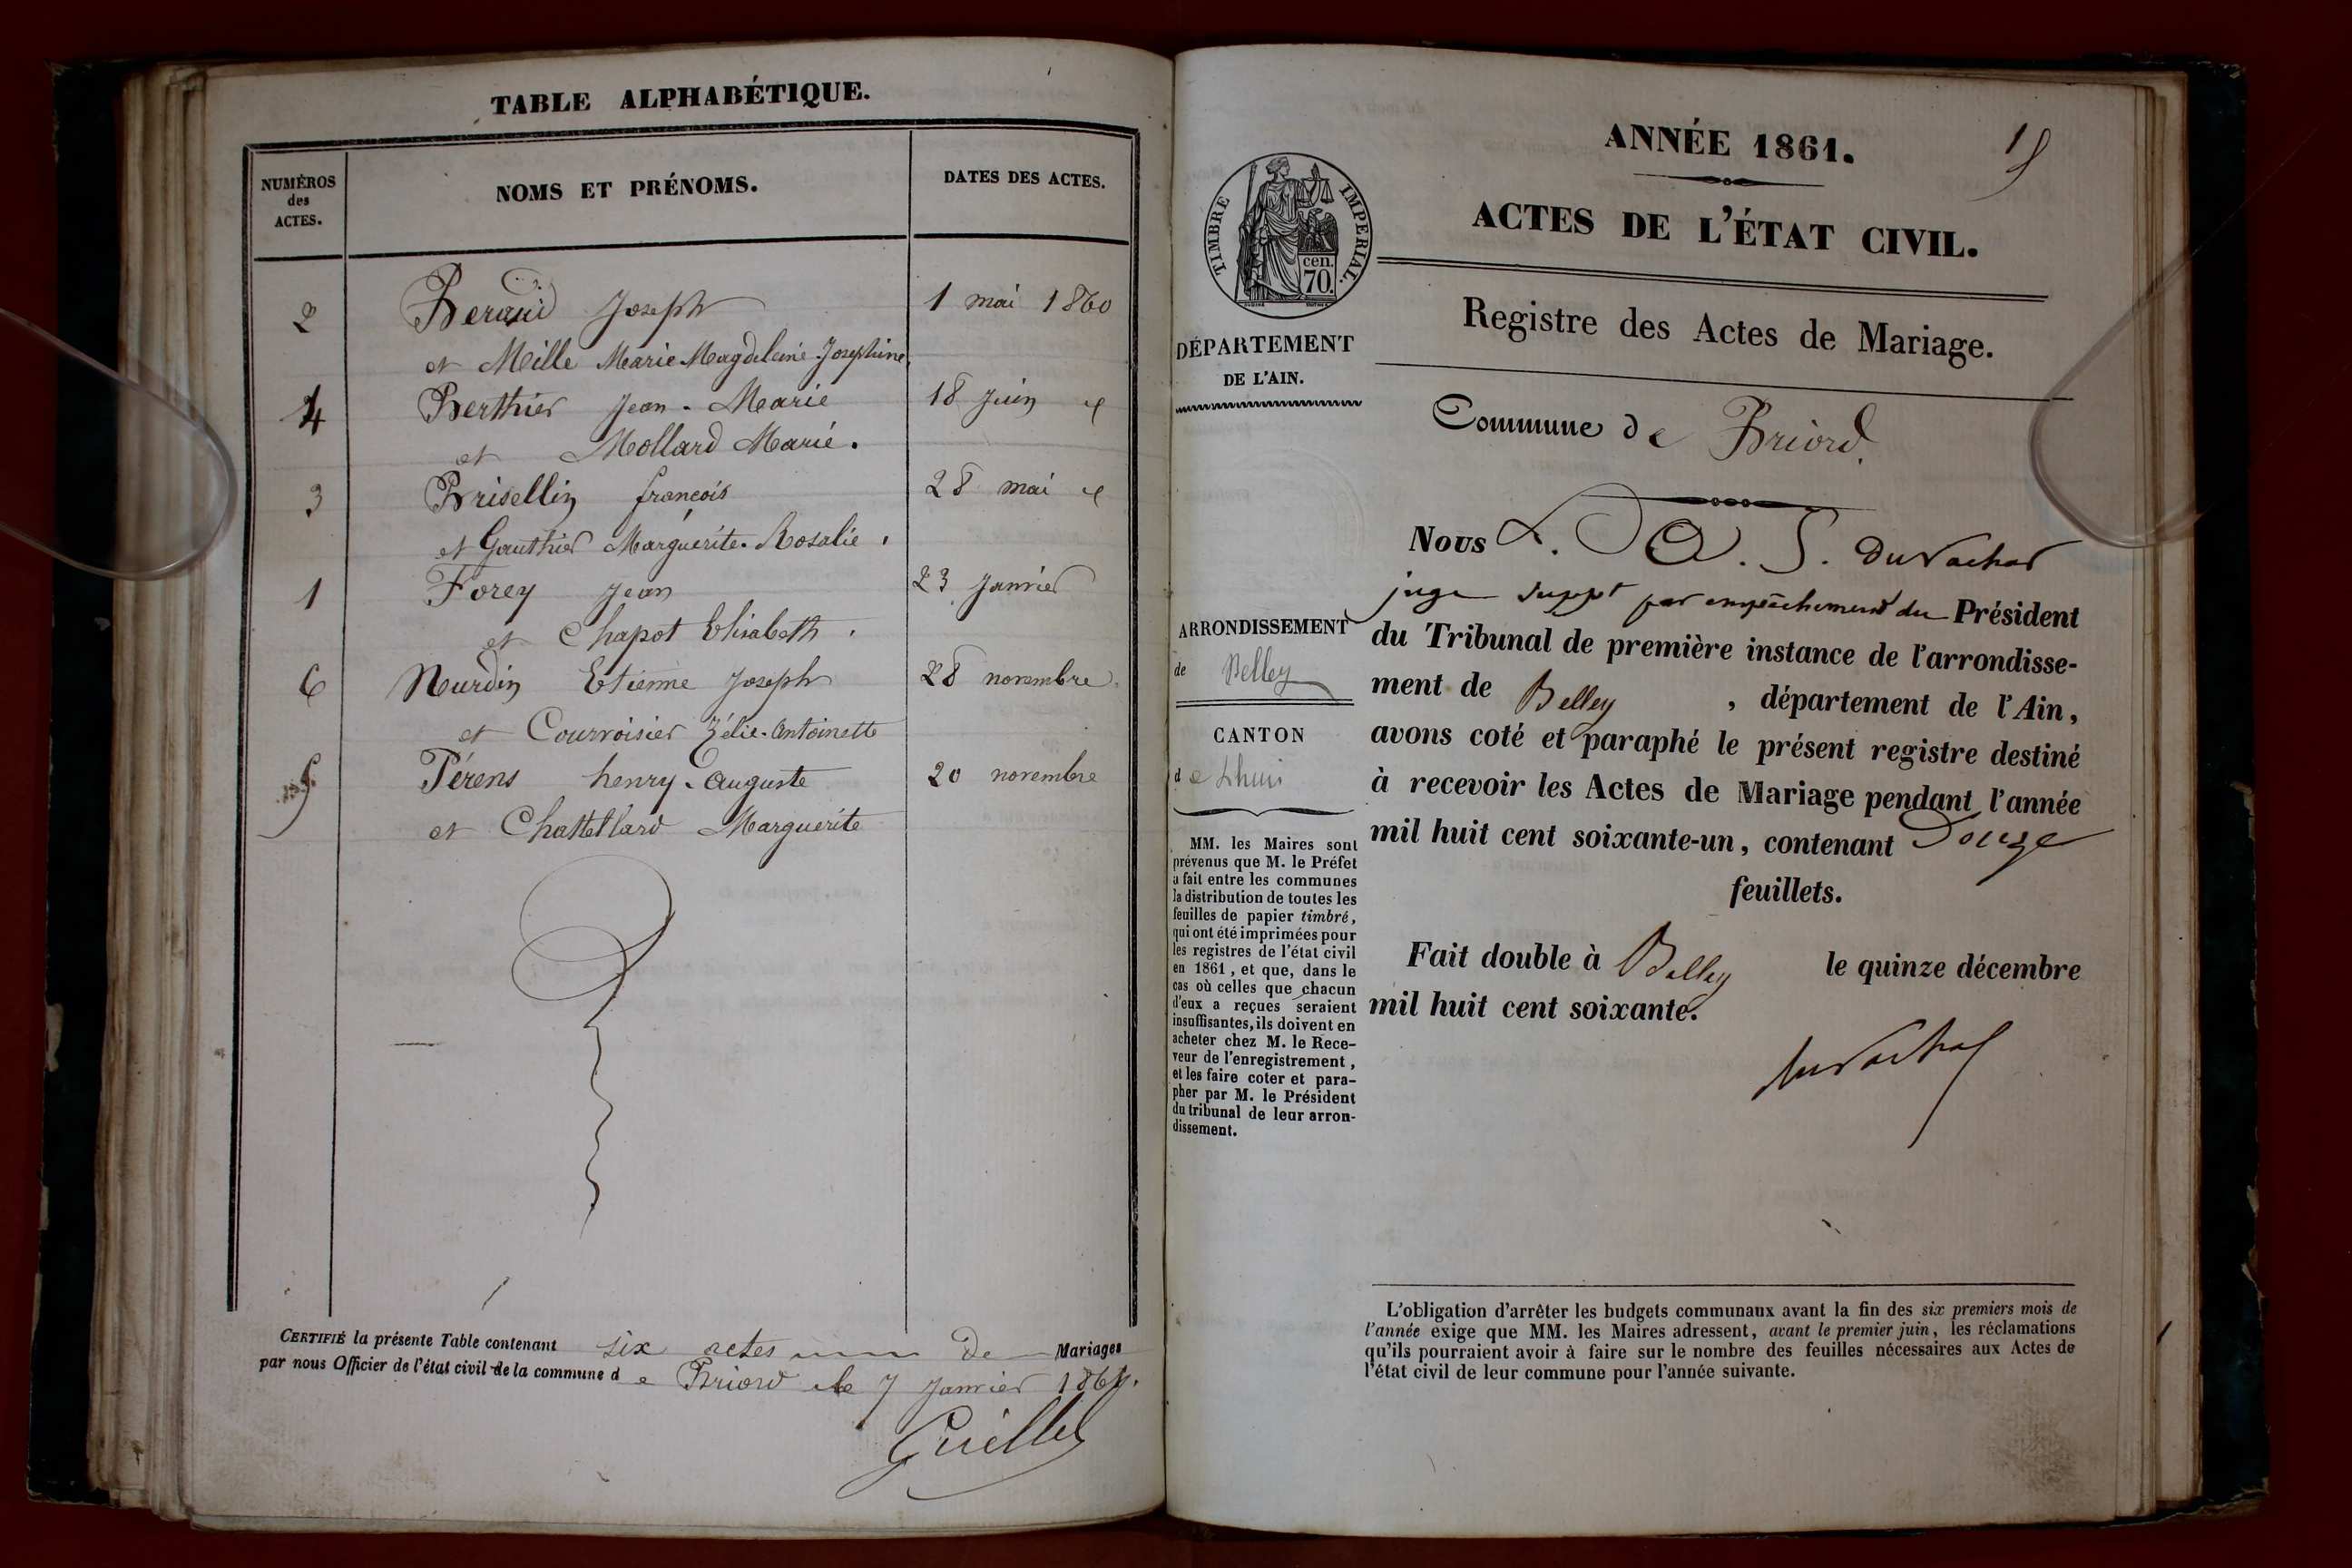 TABLE ALPHABÉTIQUE.
NUMÉROS
des
ACTES.
NOMS ET PRÉNOMS.
DATES DES ACTES.
2 Beraud Joseph 1 mai 1860
et Mille Marie Magdeleine Josephine
4 Berthier Jean-Marie 18 Juin
et Mollard Marie.
3 Brisellin françois 28 mai
et Gauthier Marguerite-Rosalie.
1 Forey Jean 23 Janvier
et Chapot Elisabeth.
6 Nurdin Etienne Joseph 28 novembre
et Courvoisier Zélie-Antoinette
5 Pérens henry-Auguste 20 novembre
et Chattellard Marguerite
CERTIFIÉ la présente Table contenant six actes de Mariages
par nous Officier de l'état civil de la commune de Briord le 7 Janvier 1861.
Guillet
ANNÉE 1861.
ACTES DE L'ÉTAT CIVIL.
TIMBRE IMPERIAL.
cen.
70.
DÉPARTEMENT
DE L'AIN.
Registre des Actes de Mariage.
Commune de Briord.
ARRONDISSEMENT
de Belley
CANTON
de Lhuis
MM. les Maires sont
prévenus que M. le Préfet
a fait entre les communes
la distribution de toutes les
feuilles de papier timbré,
qui ont été imprimées pour
les registres de l'état civil
en 1861, et que, dans le
cas où celles que chacun
d'eux a reçues seraient
insuffisantes, ils doivent en
acheter chez M. le Rece-
veur de l'enregistrement,
et les faire coter et para-
pher par M. le Président
du tribunal de leur arron-
dissement.
Nous L. S. Duvachat
juge suppt par empêchement du Président
du Tribunal de première instance de l'arrondisse-
ment de Belley, département de l'Ain,
avons coté et paraphé le présent registre destiné
à recevoir les Actes de Mariage pendant l'année
mil huit cent soixante-un, contenant Douze
feuillets.
Fait double à Belley le quinze décembre
mil huit cent soixante.
Duvachat
L'obligation d'arrêter les budgets communaux avant la fin des six premiers mois de
l'année exige que MM. les Maires adressent, avant le premier juin, les réclamations
qu'ils pourraient avoir à faire sur le nombre des feuilles nécessaires aux Actes de
l'état civil de leur commune pour l'année suivante.